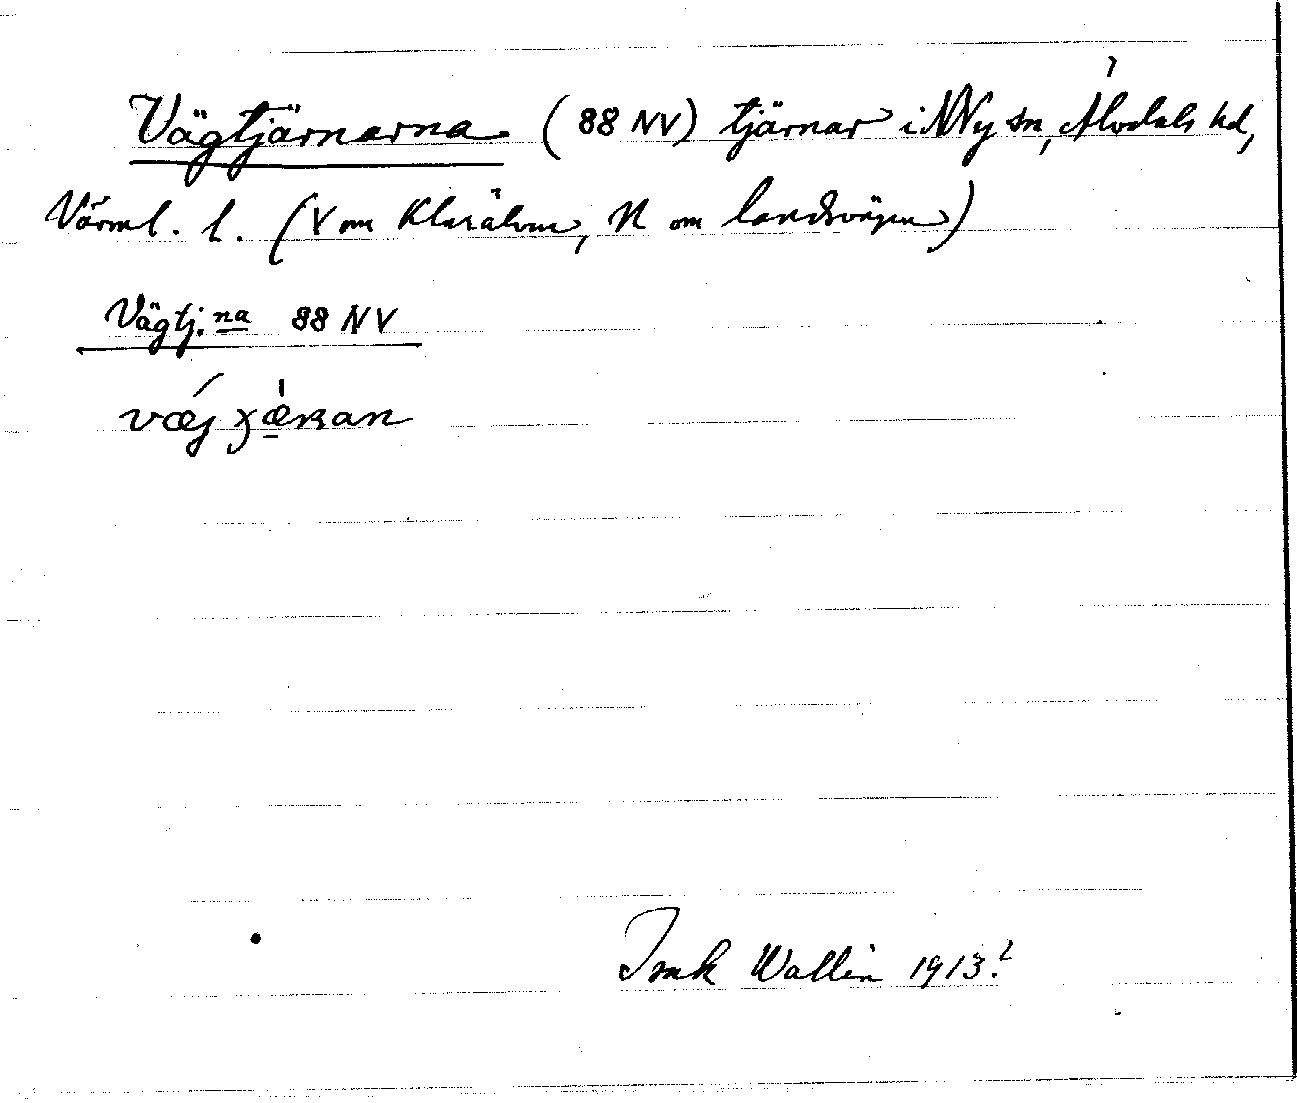 Vägtjärnarna (88 NV) tjärnar i N Ny sn, Älvdals hd,
Värml. l. (V om Klarälven, N om landsvägen)
Vägtj.na 88 NV
væjχæʀan
Isak Wallin 1913?